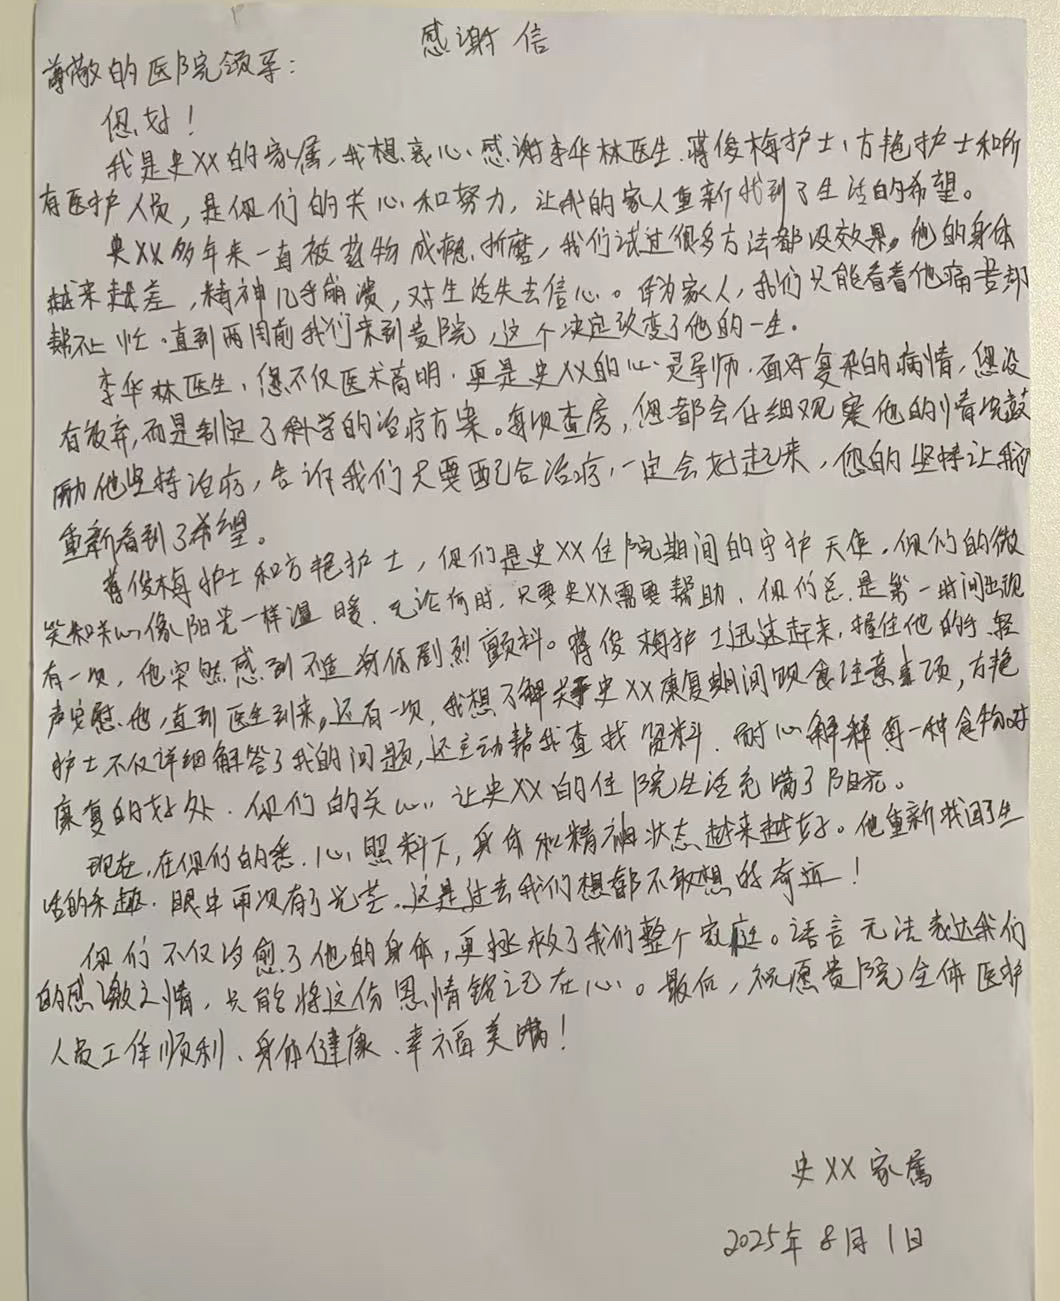 感谢信
尊敬的医院领导：
您好！
我是史XX的家属，我想衷心感谢李华林医生、蒋俊梅护士、方艳护士和所
有医护人员，是你们的关心和努力，让我的家人重新找到了生活的希望。
史XX多年来一直被药物成瘾折磨，我们试过很多方法都没效果。他的身体
越来越差，精神几乎崩溃，对生活失去信心。作为家人，我们只能看着他痛苦却
帮不上忙。直到两周前我们来到贵院，这个决定改变了他的一生。
李华林医生，您不仅医术高明，更是史XX的心灵导师。面对复杂的病情，您没
有放弃，而是制定了科学的治疗方案。每次查房，您都会仔细观察他的情况鼓
励他坚持治疗，告诉我们只要配合治疗，一定会好起来，您的坚持让我们
重新看到了希望。
蒋俊梅护士和方艳护士，你们是史XX住院期间的守护天使，你们的微
笑和关心像阳光一样温暖，无论何时，只要史XX需要帮助，你们总是第一时间出现
有一次，他突然感到不适身体剧烈颤抖。蒋俊梅护士迅速赶来，握住他的手轻
声安慰他，直到医生到来。还有一次，我想了解关于史XX康复期间饮食注意事项，方艳
护士不仅详细解答了我的问题，还主动帮我查找资料，耐心解释每一种食物对
康复的好处，你们的关心，让史XX的住院生活充满了阳光。
现在，在你们的悉心照料下，身体和精神状态越来越好。他重新找回了生
活的乐趣，眼中再次有了光芒，这是过去我们想都不敢想的奇迹！
你们不仅治愈了他的身体，更拯救了我们整个家庭。语言无法表达我们
的感激之情，只能将这份恩情铭记在心。最后，祝愿贵院全体医护
人员工作顺利、身体健康、幸福美满！
史XX家属
2025年8月1日